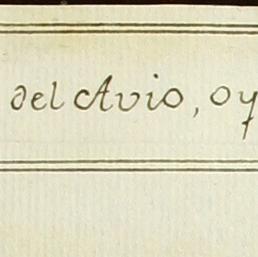 del Avio, oy